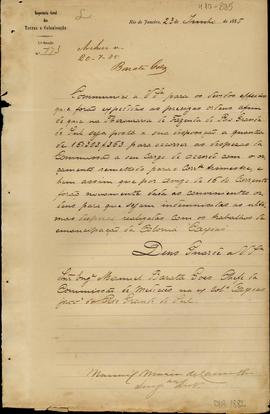 Inspectoria Geral
das
Terras e Colonização
Rio de Janeiro, 23 de Junho de 1885
N. 773
Archive-se
20-7-85
Barata Góes
Communico a V.Sa para os devidos effeitos
que foram expedidas as precisas ordens afim
de que na Thesouraria de Fazenda do Rio Grande
do Sul seja posta a sua disposição a quantia
de para occorrer as despezas da
Commissão a seu cargo de accordo com o or-
çamento remettido para o
bem assim que por Aviso de 16 do Corrente
foram novamente dadas as convenientes or-
dens para que sejam indemnisadas as ulti-
mas despezas realizadas com os trabalhos da
emancipação da Colonia Caxias
Deus Guarde a V.Sa
Snr. Engo Manuel Barata Goes Chefe da
Commissão de Medição na ex Colª Caxias
provª do Rio Grande do Sul
Manuel Maria de Carvalho